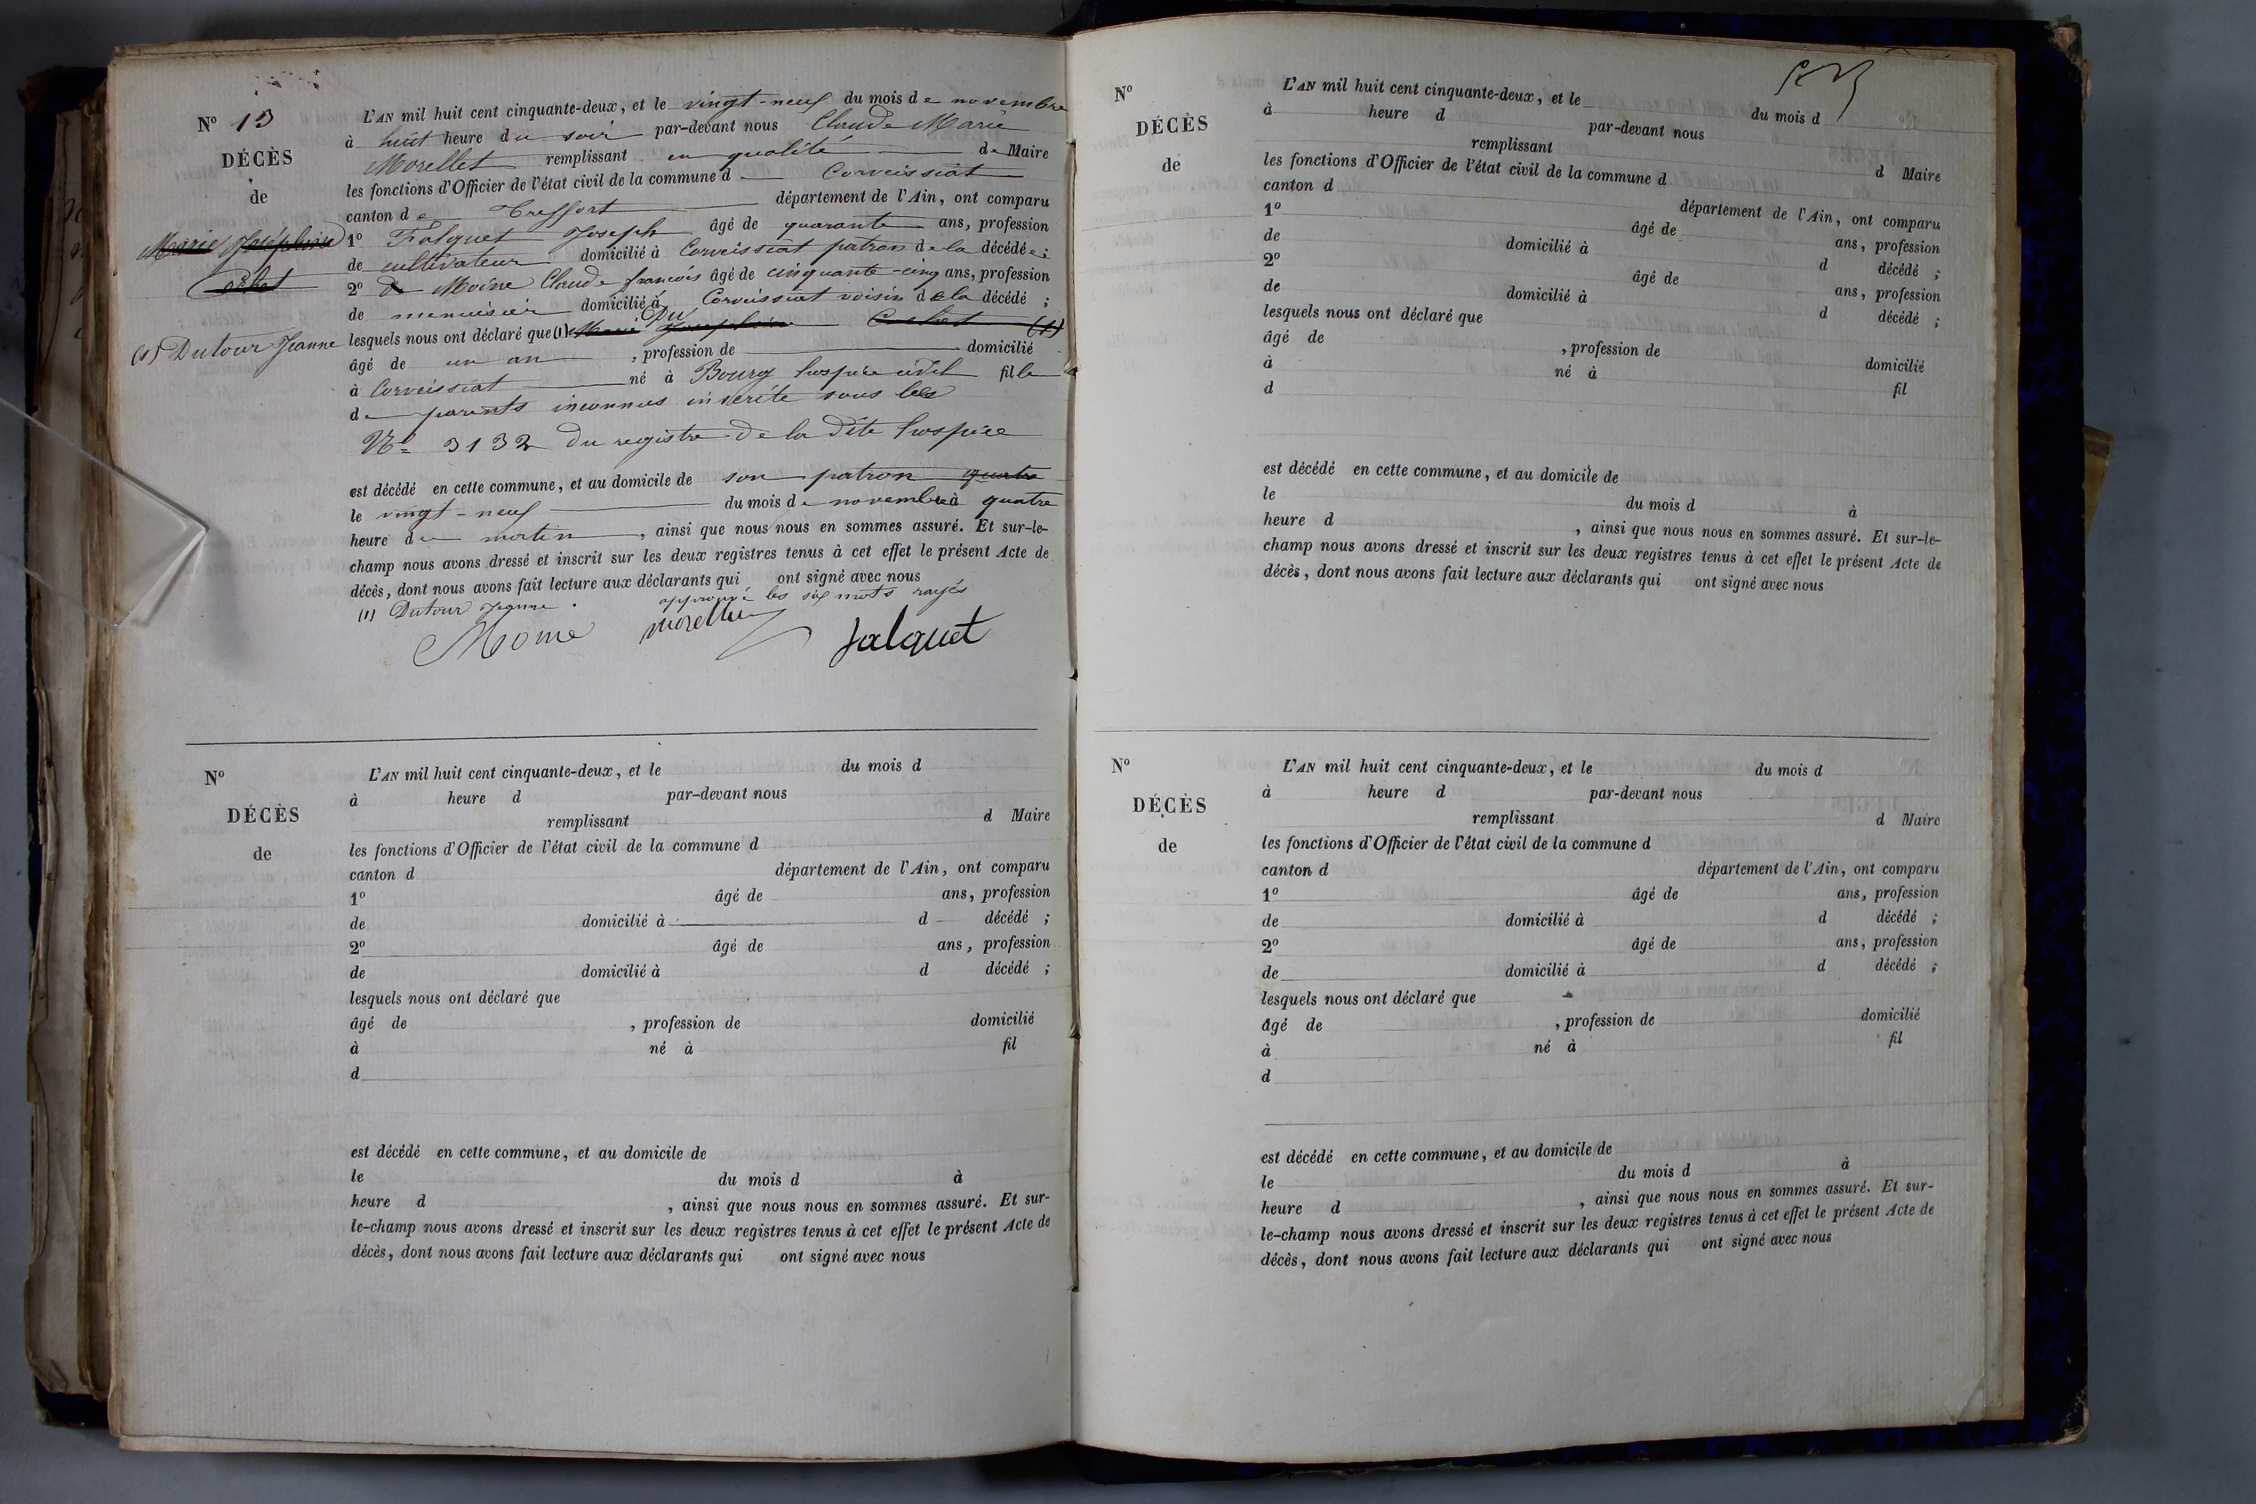 Nº 13
DÉCÈS
de
Marie Joséphine
Cochet
(1) Dutour Jeanne
L'AN mil huit cent cinquante-deux, et le vingt-neuf du mois de novembre
à huit heure du soir par-devant nous Claude Marie
Morellet remplissant en qualité de Maire
les fonctions d'Officier de l'état civil de la commune d Corveissiat
canton de Treffort département de l'Ain, ont comparu
1º Falquet Joseph âgé de quarante ans, profession
de cultivateur domicilié à Corveissiat patron de la décédée ;
2º Moine Claude françois âgé de cinquante-cinq ans, profession
de menuisier domicilié à Corveissiat voisin de la décédé ;
lesquels nous ont déclaré que (1) Marie Josephine Cochet (1)
âgé de un an , profession de domicilié
à Corveissiat né à Bourg hospice fille
de parents inconnus inscrite sous le
Nº 3132 du registre de la dite hospice
est décédé en cette commune, et au domicile de son patron quatre
le vingt-neuf du mois de novembre à quatre
heure du matin , ainsi que nous nous en sommes assuré. Et sur-le-
champ nous avons dressé et inscrit sur les deux registres tenus à cet effet le présent Acte de
décès, dont nous avons fait lecture aux déclarants qui ont signé avec nous
(1) Dutour Jeanne . approuvé les six mots rayés
Moine Morellet falquet
Nº
DÉCÈS
de
L'AN mil huit cent cinquante-deux, et le du mois d
à heure d par-devant nous
remplissant d Maire
les fonctions d'Officier de l'état civil de la commune d
canton d département de l'Ain, ont comparu
1º âgé de ans, profession
de domicilié à d décédé ;
2º âgé de ans, profession
de domicilié à d décédé ;
lesquels nous ont déclaré que
âgé de , profession de domicilié
à né à fil
d
est décédé en cette commune, et au domicile de
le du mois d à
heure d , ainsi que nous nous en sommes assuré. Et sur-
le-champ nous avons dressé et inscrit sur les deux registres tenus à cet effet le présent Acte de
décès, dont nous avons fait lecture aux déclarants qui ont signé avec nous
Nº
DÉCÈS
de
L'AN mil huit cent cinquante-deux, et le du mois d
à heure d par-devant nous
remplissant d Maire
les fonctions d'Officier de l'état civil de la commune d
canton d département de l'Ain, ont comparu
1º âgé de ans, profession
de domicilié à d décédé ;
2º âgé de ans, profession
de domicilié à d décédé ;
lesquels nous ont déclaré que
âgé de , profession de domicilié
à né à fil
d
est décédé en cette commune, et au domicile de
le du mois d à
heure d , ainsi que nous nous en sommes assuré. Et sur-le-
champ nous avons dressé et inscrit sur les deux registres tenus à cet effet le présent Acte de
décès, dont nous avons fait lecture aux déclarants qui ont signé avec nous
Nº
DÉCÈS
de
L'AN mil huit cent cinquante-deux, et le du mois d
à heure d par-devant nous
remplissant d Maire
les fonctions d'Officier de l'état civil de la commune d
canton d département de l'Ain, ont comparu
1º âgé de ans, profession
de domicilié à d décédé ;
2º âgé de ans, profession
de domicilié à d décédé ;
lesquels nous ont déclaré que
âgé de , profession de domicilié
à né à fil
d
est décédé en cette commune, et au domicile de
le du mois d à
heure d , ainsi que nous nous en sommes assuré. Et sur-
le-champ nous avons dressé et inscrit sur les deux registres tenus à cet effet le présent Acte de
décès, dont nous avons fait lecture aux déclarants qui ont signé avec nous